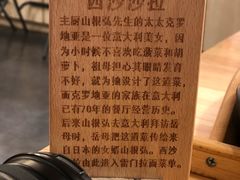 西沙沙拉
主厨山根弘先生的太太克罗
地亚是一位意大利美女，因
为小时候不喜欢吃菠菜和胡
萝卜，祖母担心其眼睛发育
不好，就为她设计了这道菜，
而克罗地亚的家族在意大利
已有70年的餐厅经营历史。
后来山根弘去意大利拜访岳
母时，岳母把这道菜传给来
自日本的女婿山根弘。西沙
拉由此进入雷门拉面菜单。